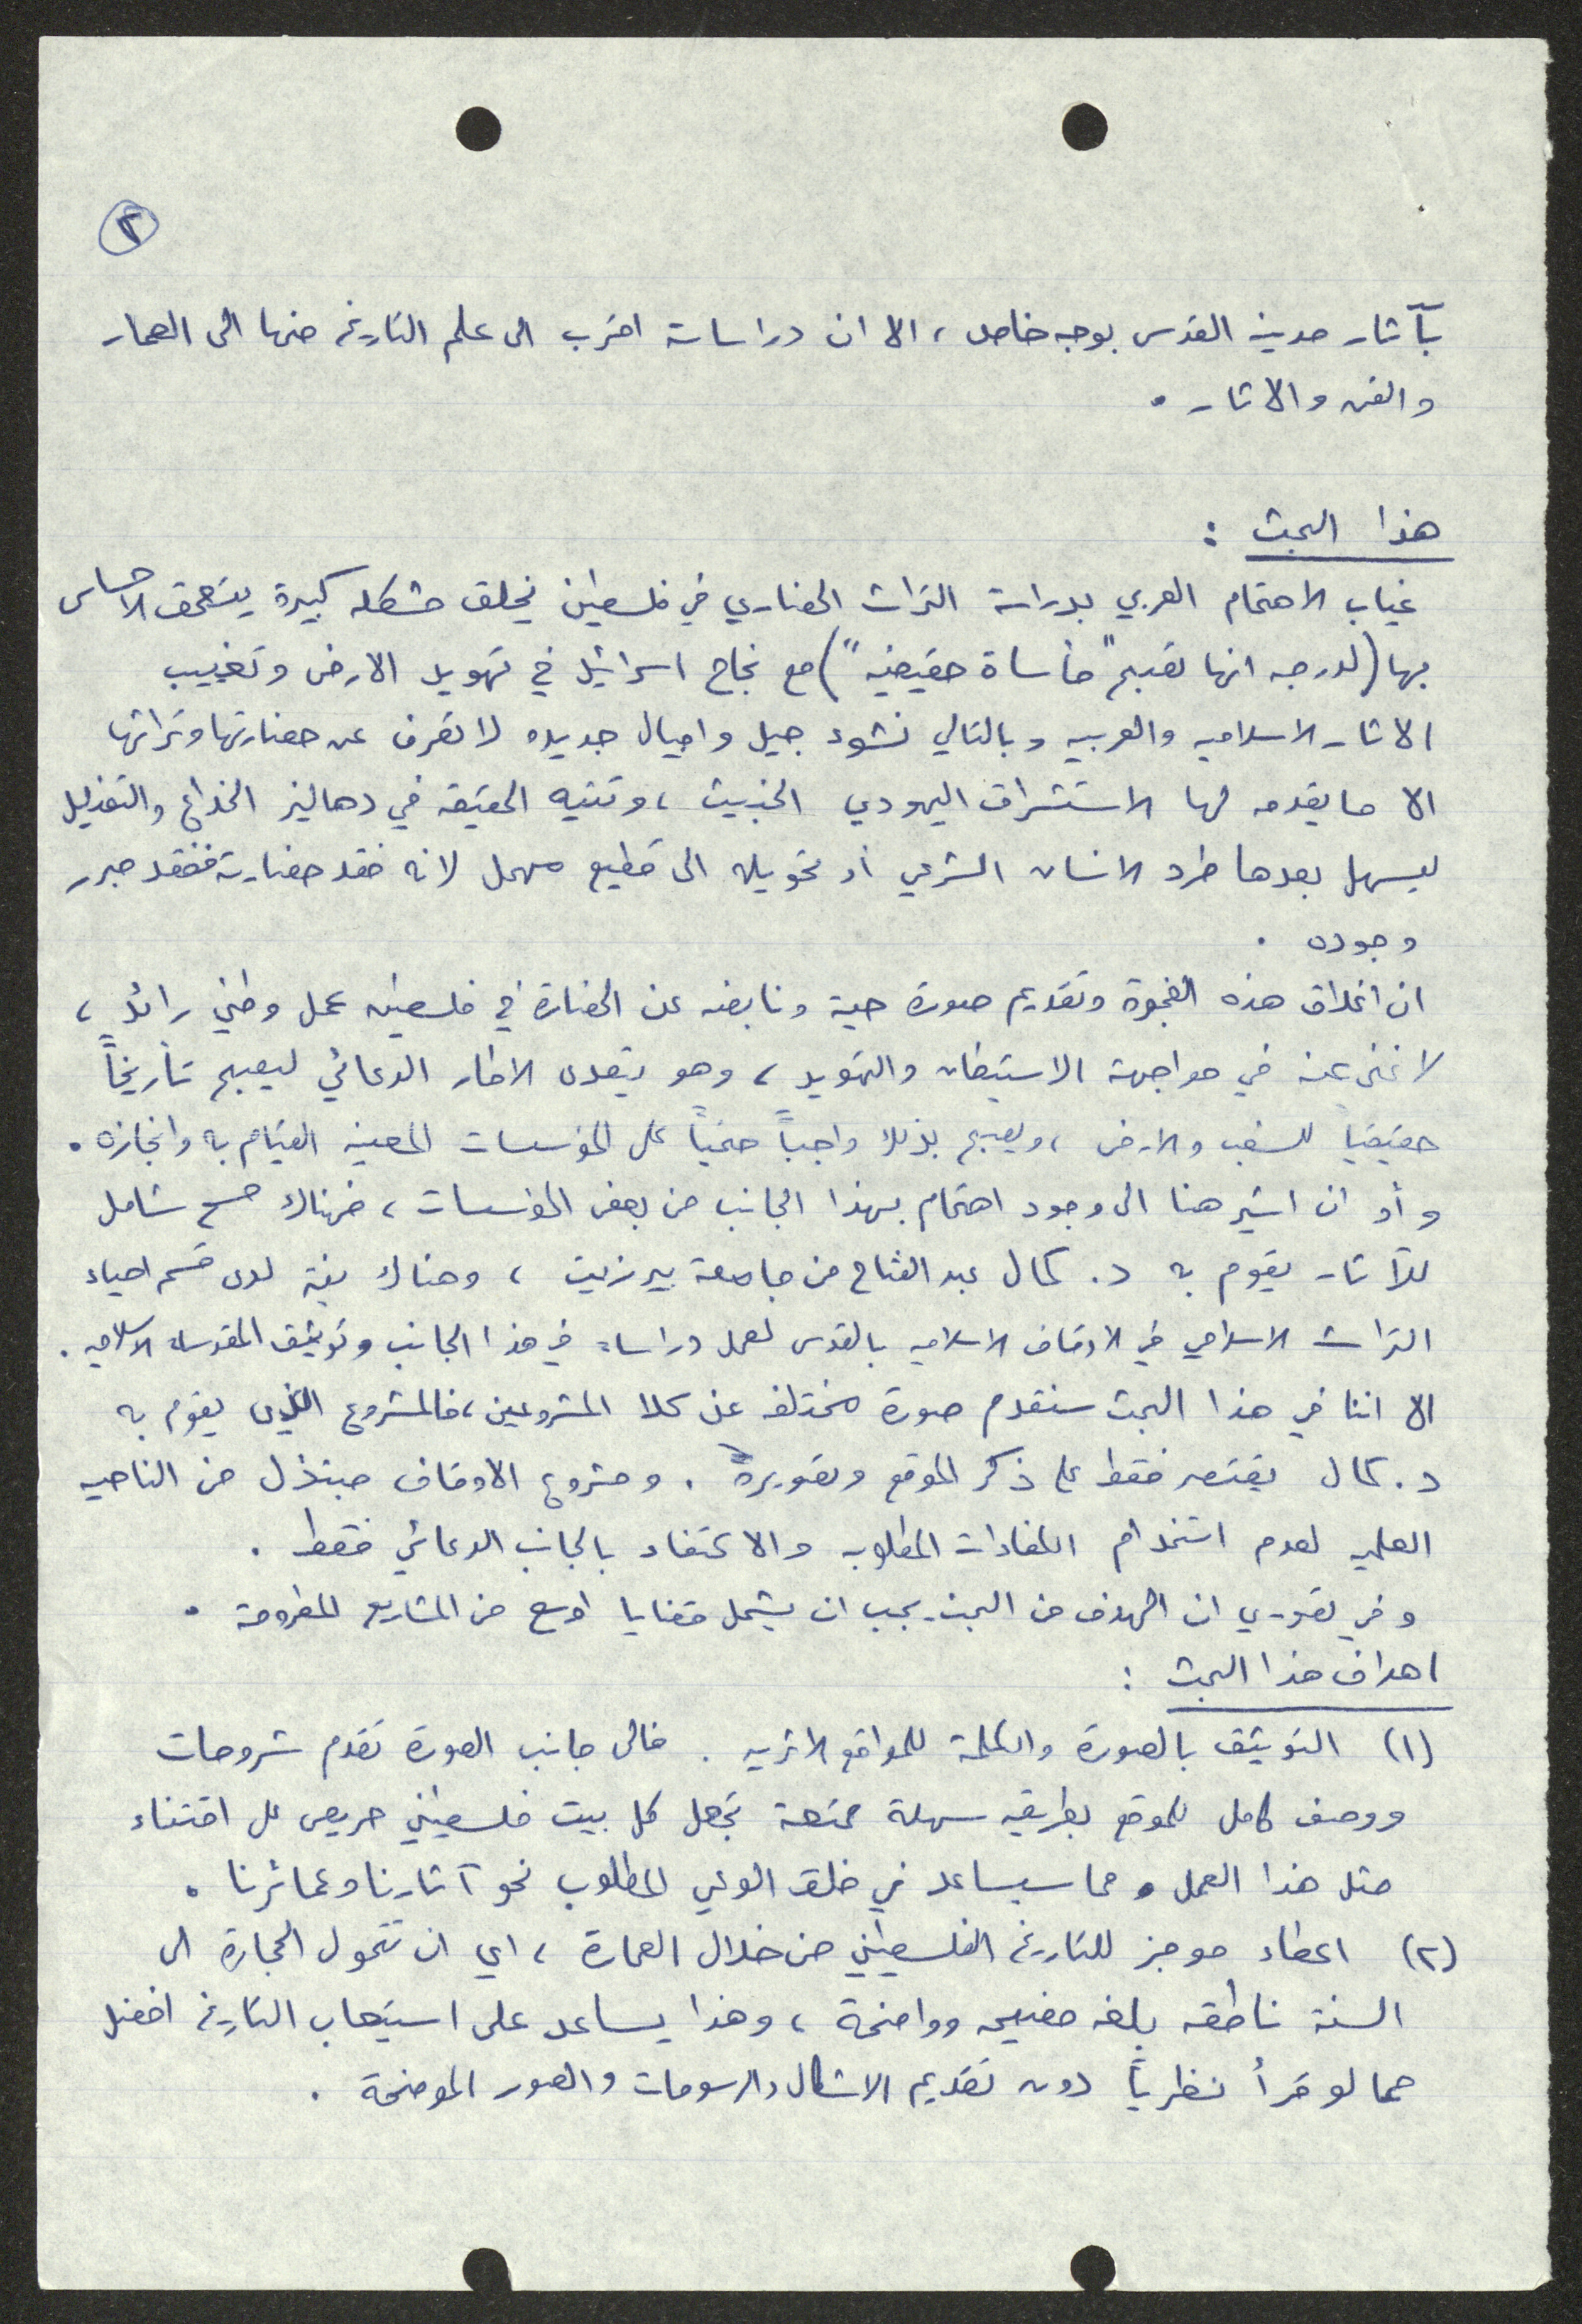 ٢
بآثار مدينة القدس بوجه خاص ، الا ان دراساته اقرب الى علم التاريخ منها الى العمار
والفن والاثار .
هذا البحث :
غياب الاهتمام العربي بدراسة التراث الحضاري في فلسطين يخلق مشكله كبيرة يتعمق الاحساس
بها (لدرجه انها تصبح "مأساة حقيقيه") مع نجاح اسرائيل في تهويد الارض وتغييب
الاثار الاسلاميه والعربيه وبالتالي نشوء جيل واجيال جديده لا تعرف عن حضارتها وتراثها
الا ما يقدمه لها الاستشراق اليهودي الخبيث ، وتتيه الحقيقه في دهاليز الخداع والتضليل
ليسهل بعدها طرد الانسان الشرعي أو تحويله الى قطيع مهمل لانه فقد حضارته ففقد مبرر
وجوده .
ان اغلاق هذه الفجوة وتقديم صورة حية ونابضه عن الحضارة في فلسطين عمل وطني رائد ،
لا غنى عنه في مواجهة الاستيطان والتهويد ، وهو يتعدى الاطار الدعائي ليصبح تأريخاً
حقيقياً للشعب والارض ، ويصبح بذلك واجباً حتمياً على المؤسسات المعنيه القيام به وانجازه .
وأود ان اشير هنا الى وجود اهتمام بهذا الجانب من بعض المؤسسات ، فهناك مسح شامل
للآثار يقوم به د. كمال عبد الفتاح من جامعة بيرزيت ، وهناك نية لدى قسم احياء
التراث الاسلامي في الاوقاف الاسلاميه بالقدس لعمل دراسات في هذا الجانب وتوثيق المقدسات الاسلاميه .
الا اننا في هذا البحث سنقدم صورة مختلفه عن كلا المشروعين ، فالمشروع الذي يقوم به
د. كمال يقتصر فقط على ذكر الموقع وتصويره . ومشروع الاوقاف مبتذل من الناحيه
العلميه لعدم استخدام الكفاءات المطلوبه والاكتفاء بالجانب الدعائي فقط .
وفي تصوري ان الهدف من البحث يجب ان يشمل قضايا اوسع من المشاريع المطروحة .
اهداف هذا البحث :
(١) التوثيق بالصورة والكلمة للمواقع الاثريه . فالى جانب الصورة تقدم شروحات
ووصف كامل للموقع بطريقه سهلة ممتعة تجعل كل بيت فلسطيني حريص على اقتناء
مثل هذا العمل . مما سيساعد في خلق الوعي المطلوب نحو آثارنا وعمائرنا .
(٢) اعطاء موجز للتاريخ الفلسطيني من خلال العمارة ، اي ان تتحول الحجارة الى
السنة ناطقه بلغه فصيحه وواضحة ، وهذا يساعد على استيعاب التاريخ افضل
مما لو قرأ نظرياً دون تقديم الاشكال والرسومات والصور الموضحة .